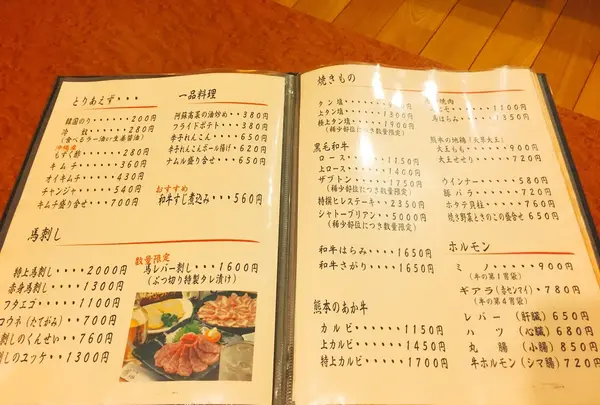 とりあえず・・・
韓国のり・・・・・・200円
冷奴・・・・・・・・280円
(食べるラー油か生姜醤油)
沖縄産
もずく酢・・・・・・280円
キムチ・・・・・・・360円
オイキムチ・・・・・430円
チャンジャ・・・・・540円
キムチ盛り合せ・・・700円
一品料理
阿蘇高菜の油炒め・・380円
フライドポテト・・・380円
辛子れんこん・・・・650円
辛子れんこんボール揚げ・620円
ナムル盛り合せ・・・650円
おすすめ
和牛すじ煮込み・・・560円
馬刺し
特上馬刺し・・・・2000円
赤身馬刺し・・・・1300円
フタエゴ・・・・・1100円
コウネ(たてがみ)・・700円
刺しのくんせい・・・760円
刺しのユッケ・・・1300円
数量限定
馬レバー刺し・・・1600円
(ぶつ切り特製タレ漬け)
焼きもの
タン塩
上タン塩
極上タン塩・・・・1900円
(稀少部位につき数量限定)
黒毛和牛
ロース・・・・・・1150円
上ロース・・・・・1400円
ザブトン・・・・・1750円
(稀少部位につき数量限定)
特撰ヒレステーキ・・2350円
シャトーブリアン・・5000円
(稀少部位につき数量限定)
和牛はらみ・・・・1650円
和牛さがり・・・・1650円
熊本のあか牛
カルビ・・・・・・1150円
上カルビ・・・・・1450円
特上カルビ・・・・1700円
焼肉
1100円
馬はらみ・・・・・1350円
熊本の地鶏「天草大王」
大王もも・・・・・900円
大王せせり・・・・720円
ウインナー・・・・580円
豚バラ・・・・・・720円
ホタテ貝柱・・・・760円
焼き野菜ときのこの盛合せ650円
ホルモン
ミノ・・・・・・・900円
(牛の第1胃袋)
ギアラ(赤センマイ)・780円
(牛の第4胃袋)
レバー(肝臓)650円
ハツ(心臓)680円
丸腸(小腸)850円
牛ホルモン(シマ腸)720円